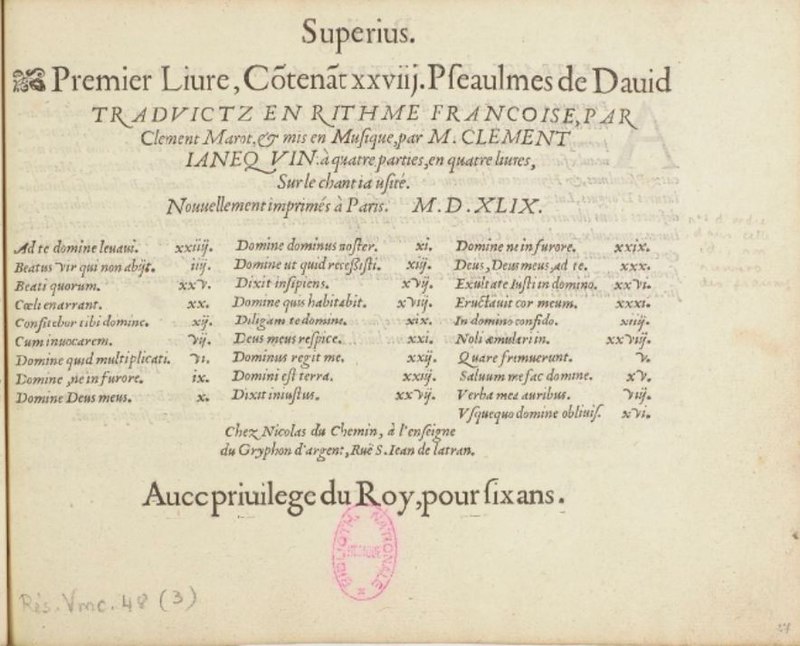 Superius.
Premier Liure, Cõtenãt xxviij. Pſeaulmes de Dauid
TRADVICTZ EN RITHME FRANCOISE, PAR
Clement Marot, & mis en Muſique, par M. CLEMENT
IANEQVIN. à quatre parties, en quatre liures,
Sur le chant ia uſité.
Nouuellement imprimés à Paris. M.D.XLIX.
Ad te domine leuaui. xxiiij.
Beatus vir qui non abijt. iiij.
Beati quorum. xxv.
Cœli enarrant. xx.
Confitebor tibi domine. xij.
Cum inuocarem. vij.
Domine quid multiplicati. vi.
Domine, ne in furore. ix.
Domine Deus meus. x.
Domine dominus noſter. xi.
Domine ut quid receßiſti. xiij.
Dixit inſipiens. xvij.
Domine quis habitabit. xviij.
Diligam te domine. xix.
Deus meus reſpice. xxi.
Dominus regit me. xxij.
Domini eſt terra. xxiij.
Dixit iniuſtus. xxvij.
Domine ne in furore. xxix.
Deus, Deus meus, ad te. xxx.
Exultate Iuſti in domino. xxvi.
Eructauit cor meum. xxxi.
In domino confido. xiiij.
Noli æmulari in. xxviij.
Quare fremuerunt. v.
Saluum me fac domine. xv.
Verba mea auribus. viij.
Vſquequo domine obliuiſ. xvi.
Chez Nicolas du Chemin, à l'enſeigne
du Gryphon d'argent, Ruë S. Iean de latran.
Auec priuilege du Roy, pour ſix ans.
BIBLIOTH. NATIONALE
MUSIQUE
Rés. Vmc. 48 (3)
27